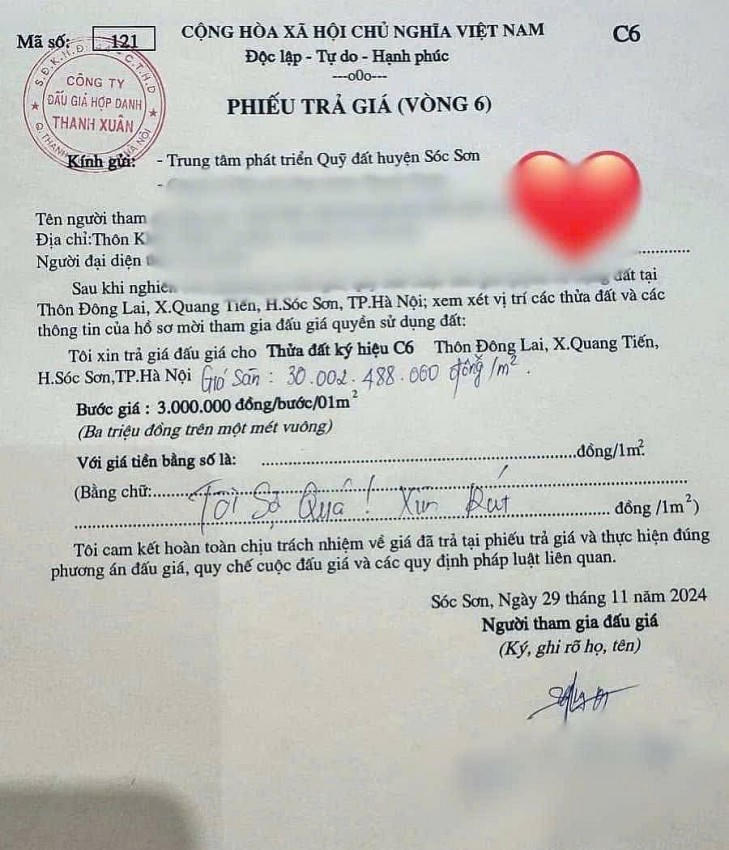 Mã số: 121
CỘNG HÒA XÃ HỘI CHỦ NGHĨA VIỆT NAM
C6
Độc lập - Tự do - Hạnh phúc
---o0o---
S.Đ.K.H.Đ
C.T.H.D
CÔNG TY
ĐẤU GIÁ HỢP DANH
THANH XUÂN
PHIẾU TRẢ GIÁ (VÒNG 6)
Kính gửi: - Trung tâm phát triển Quỹ đất huyện Sóc Sơn
-
Tên người tham
Địa chỉ:Thôn K
Người đại diện
Sau khi nghiên đất tại
Thôn Đông Lai, X.Quang Tiến, H.Sóc Sơn, TP.Hà Nội; xem xét vị trí các thửa đất và các
thông tin của hồ sơ mời tham gia đấu giá quyền sử dụng đất:
Tôi xin trả giá đấu giá cho Thửa đất ký hiệu C6 Thôn Đông Lai, X.Quang Tiến,
H.Sóc Sơn,TP.Hà Nội Gió Sàn : 30.002.488.000 đồng/m².
Bước giá : 3.000.000 đồng/bước/01m²
(Ba triệu đồng trên một mét vuông)
Với giá tiền bằng số là: ....................đồng/1m².
(Bằng chữ:..... Tôi Sợ Quá! Xin Rút
.................... đồng /1m²)
Tôi cam kết hoàn toàn chịu trách nhiệm về giá đã trả tại phiếu trả giá và thực hiện đúng
phương án đấu giá, quy chế cuộc đấu giá và các quy định pháp luật liên quan.
Sóc Sơn, Ngày 29 tháng 11 năm 2024
Người tham gia đấu giá
(Ký, ghi rõ họ, tên)